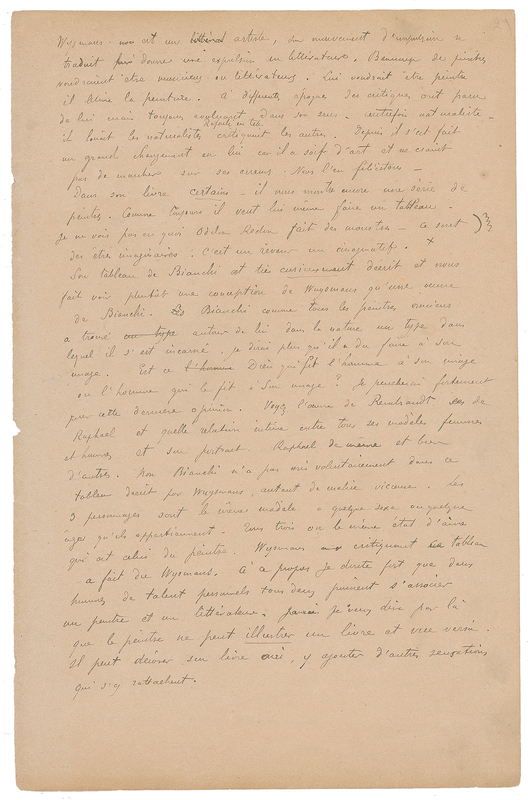 Wuysmans - non est un artiste, un mouvement d'impulsion se
traduit donne une expulsion en littérature. Beaucoup de peintres
voudraient être musiciens ou littérateurs. Lui voudrait être peintre
il aime la peinture. A différents époque des critiques ont paru
de lui mais toujours dans son sens. autrefois naturaliste
Raffaelli en tête
il louait les naturalistes critiquant les autres. Depuis il s'est fait
un grand changement en lui car il a soif d'art et ne craint
pas de marcher sur ses erreurs. Nous l'en félicitons -
Dans son livre certains - il nous montre encore une série de
peintres. Comme toujours il veut lui même faire un tableau.
Je ne vois pas en quoi Odilon Redon fait des monstres - ce sont
des êtres imaginaires. C'est un rêveur un imaginatif. x
Son tableau de Bianchi est très curieusement décrit et nous
fait voir plutôt une conception de Wuysmans qu'une œuvre
de Bianchi. Bianchi comme tous les peintres
a trouvé un type autour de lui dans la nature un type dans
lequel il s'est incarné, je dirai plus qu'il a du faire à son
image. Est ce l'homme Dieu qui fit l'homme à son image
ou l'homme qui le fit à son image? Je pencherai fortement
pour cette dernière opinion. Voyez l'œuvre de Rembrandt de
Raphael et quelle relation intime entre tous ses modèles femmes
et hommes et son portrait. Raphael de même et bien
d'autres. Non Bianchi n'a pas mis volontairement dans ce
tableau décrit par Wuysmans, autant de malice vicieuse. Les
3 personnages sont le même modèle a quelque sexe ou quelque
âges qu'ils appartiennent. Tous trois ont le même état d'âme
qui est celui du peintre. Wuysmans critiquant tableau
a fait du Wuysmans. A ce propos je doute fort que deux
hommes de talent personnels tous deux puissent s'associer
un peintre et un littérateur. je veux dire par là
que le peintre ne peut illustrer un livre et vice versa.
Il peut décorer un livre oui, y ajouter d'autres sensations
qui s'y rattachent.